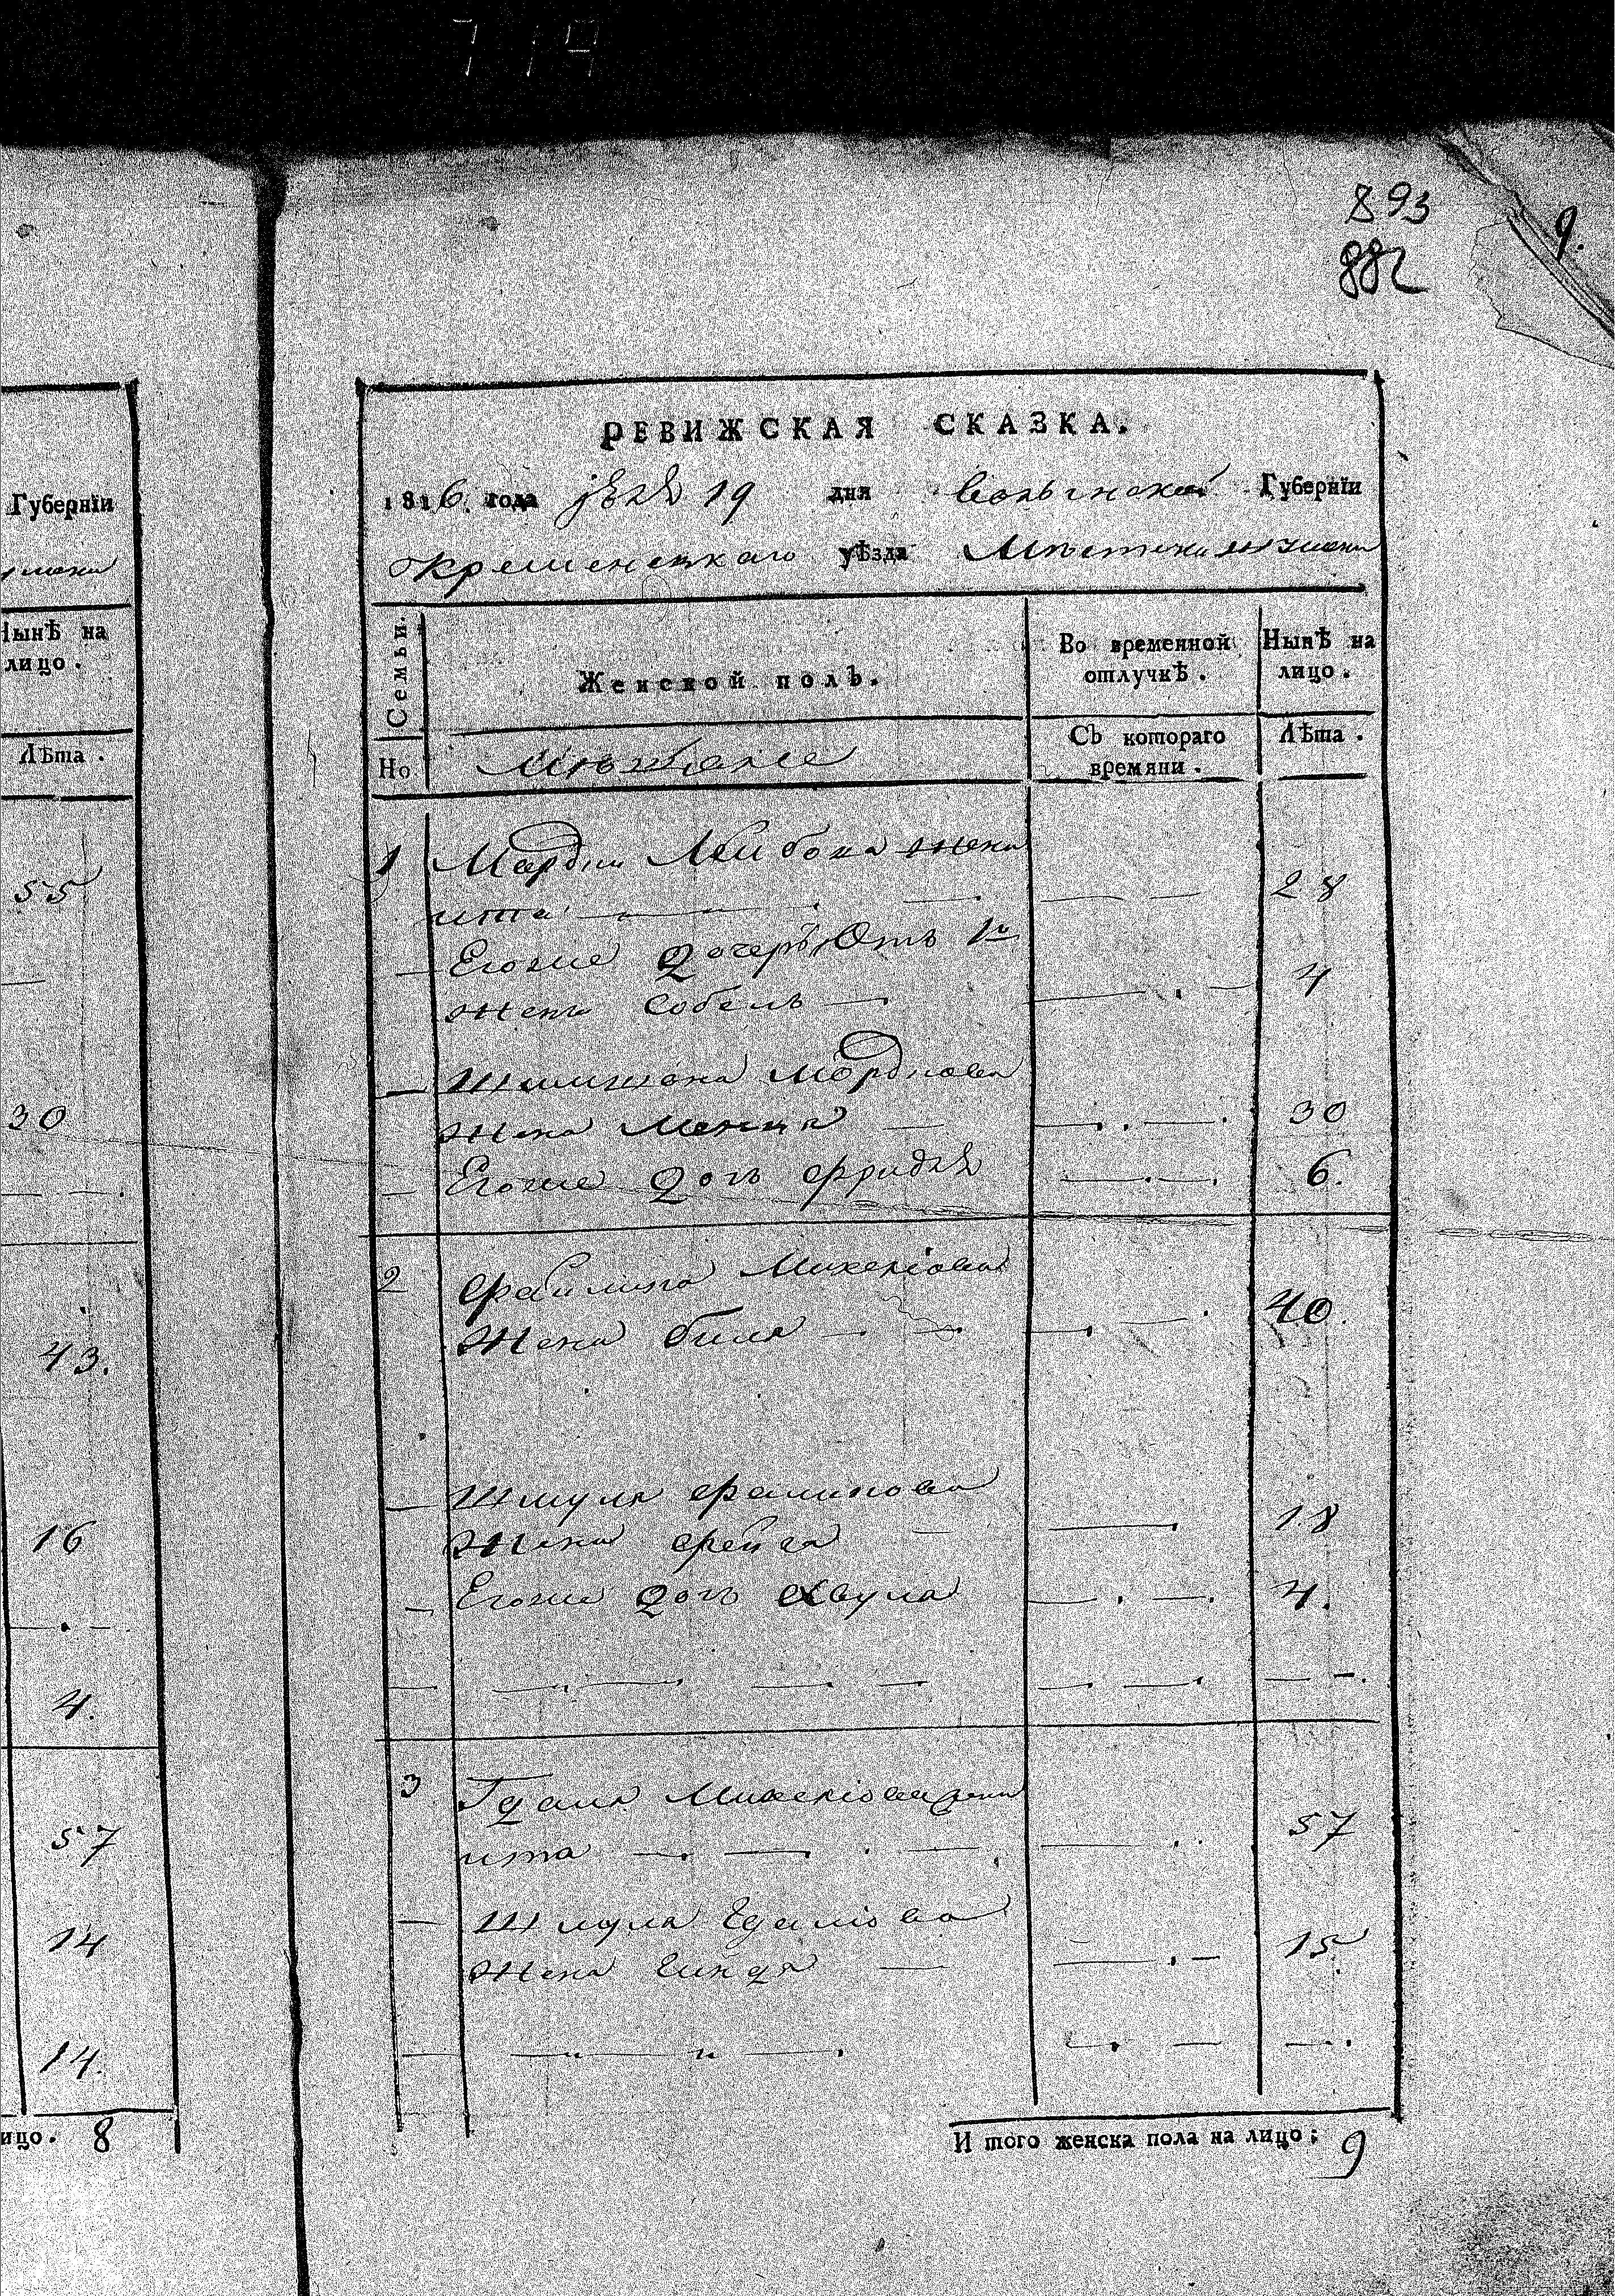 7 14
893
882
9.
Губернїи
Нынѣ на
лицо.
Лѣта.
55
30
43.
16
4.
57
14
14.
ицо. 8
РЕВИЖСКАЯ СКАЗКА.
1816. года 19 дня Волынской Губернїи
кременецкаго уѣзда Местечка
Семьи.
Но
Женской полъ.
Во временной
отлучкѣ.
Нынѣ на
лицо.
Съ котораго
времяни.
Лѣта.
1 Лейбова жена
ита 28
Егоже дочерь, Отъ 1й
жены Собель 4
— Мордкова
Жена 30
— Егоже дочь Фридя 6.
2 Файлиша Михелiова
Жена биля 40.
— Шмуля Фалишова
Жена фейга 18
— Егоже дочь Хвуля 4.
3 Гдаля Михелiова жена
ита 57
— Шмуля Гдалiова
Жена гиндя 15
И того женска пола на лицо: 9